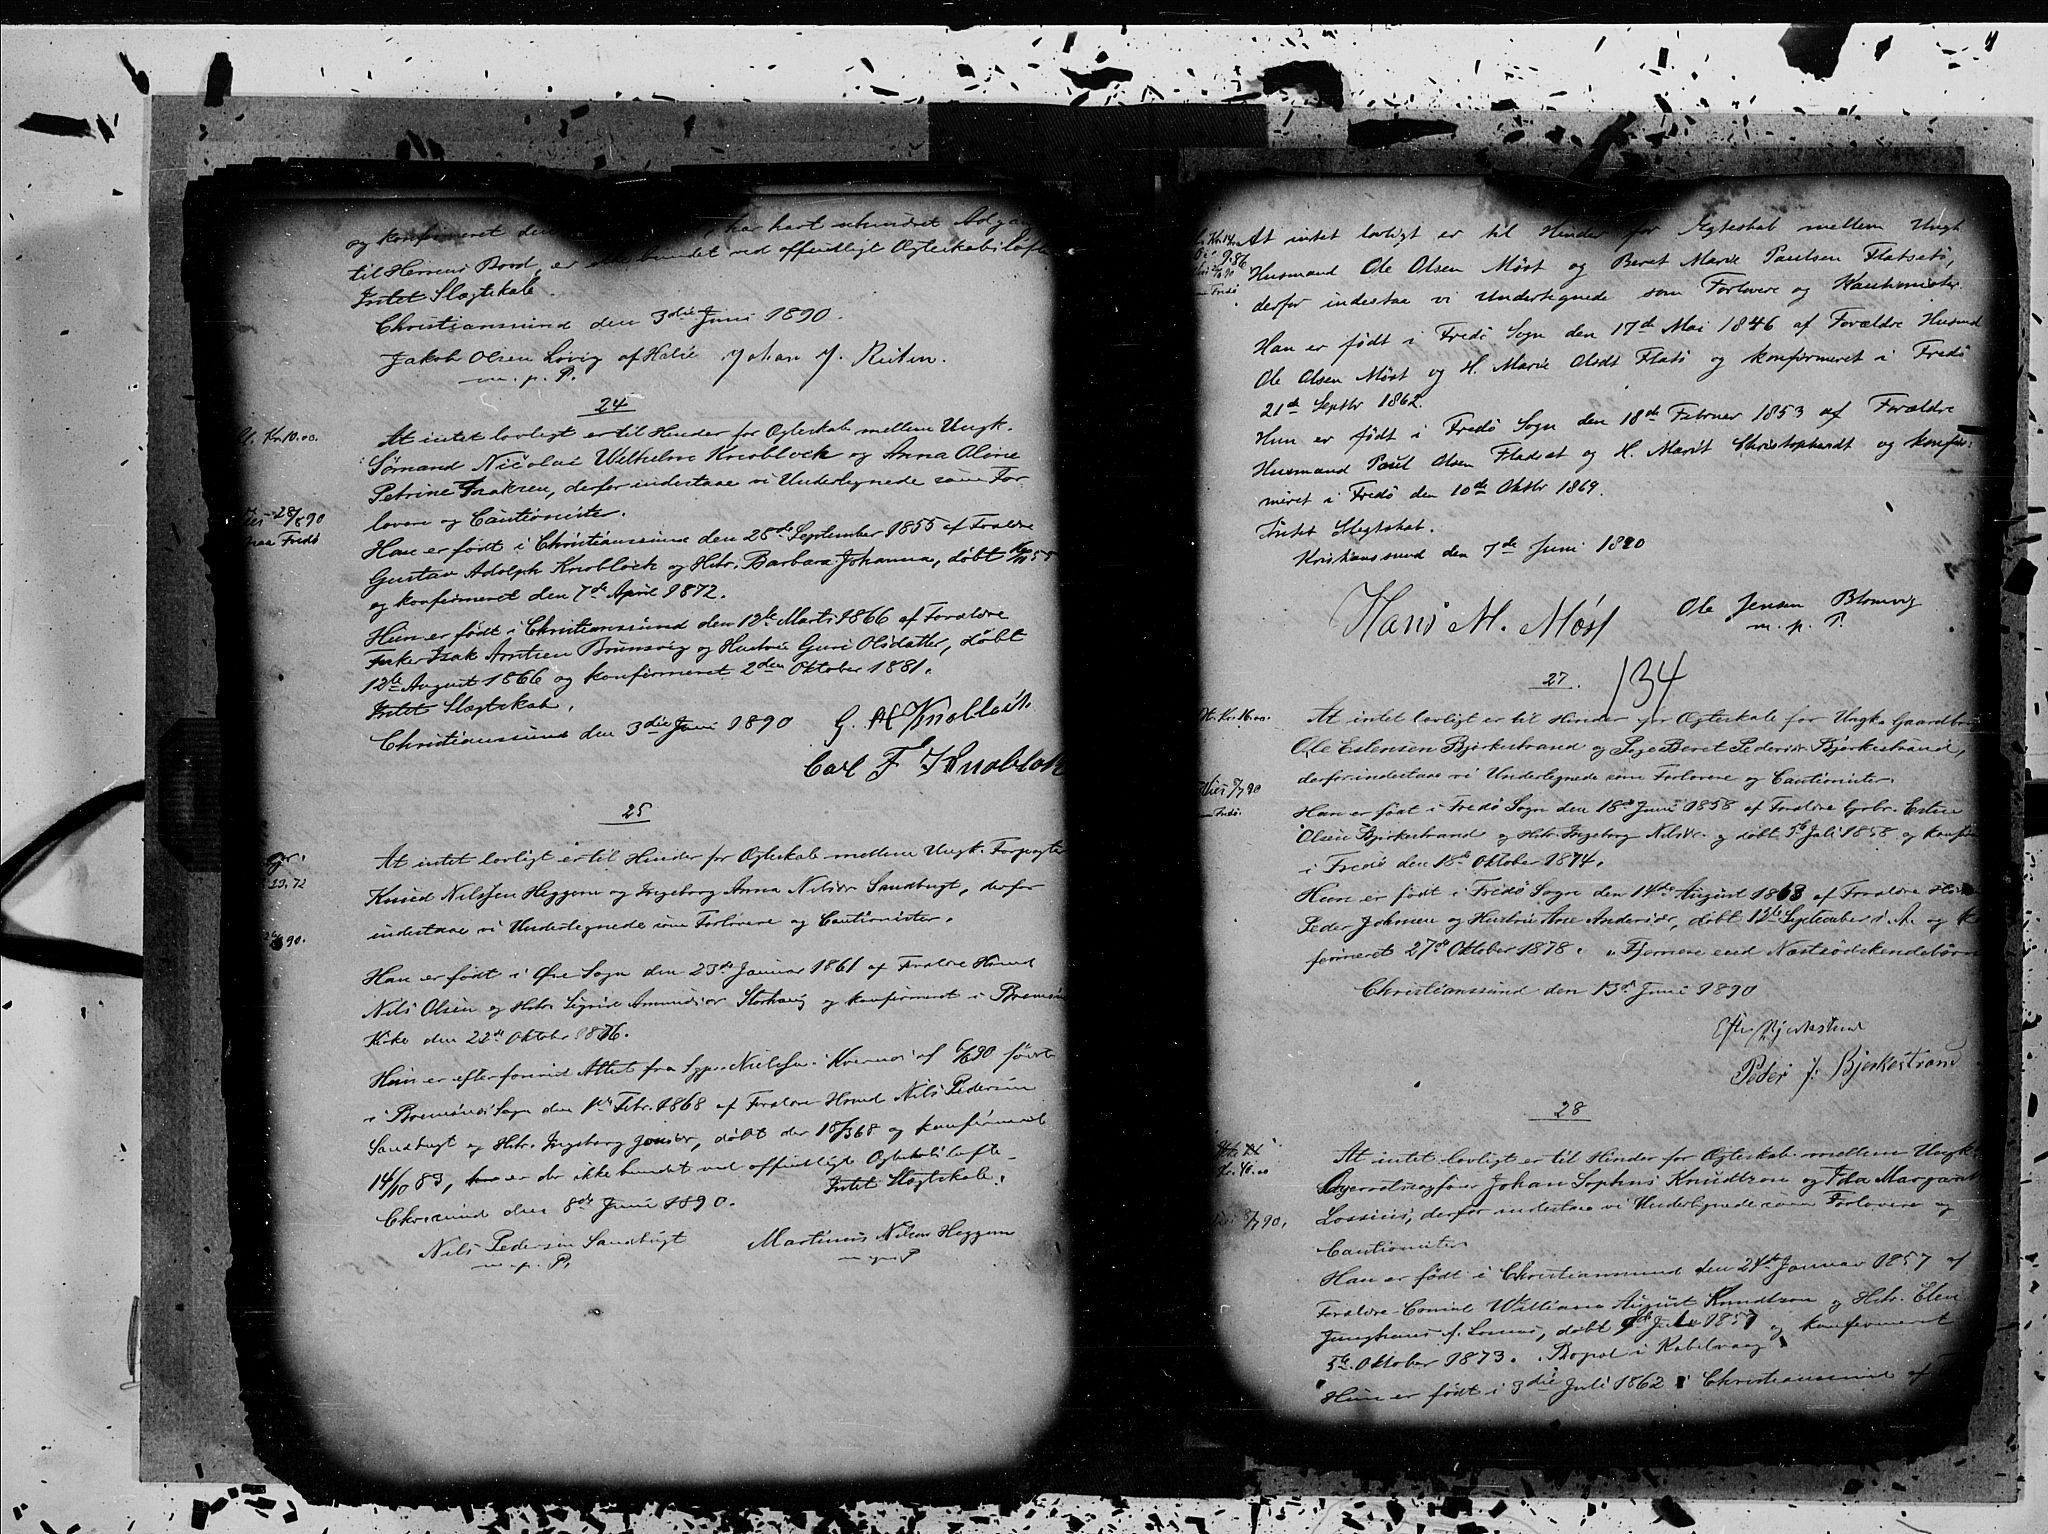 og konfirmeret den har havt uhindret Adgang
til Herrens Bord, er ikke bundet ved offentligt Ægteskabsløfte
Intet Slægtskab.
Christianssund den 3die Juni 1890.
Jakob Olsen Løvig af Halse Johan J. Reiten.
m. p. P.
24
Kr. 10.00.
At intet lovligt er til Hinder for Ægteskab mellem Ungk.
Sømand Nicolai Wilhelm Knoblock og Anna Oline
Petrine Isaksen, derfor indestaae vi Undertegnede som For
lovere og Cautionister.
Viet 28/6 90
paa Fredø
Han er født i Christianssund den 28de September 1855 af Forældre
Gustav Adolph Knoblock og Hstr. Barbara Johanna, døbt 55
og konfirmeret den 7de April 1872.
Hun er født i Christianssund den 12te Marts 1866 af Forældre
Fisker Isak Arntsen Brunsvig og Hustru Guri Olsdatter, døbt
12te August 1866 og konfirmeret 2den Oktober 1881.
Intet Slægtskab.
Christianssund den 3die Juni 1890 G. A Knoblock
Carl F Knoblock
25
At intet lovligt er til Hinder for Ægteskab mellem Ungk. Forpagter
Knud Nilssen Heggem og Ingeborg Anna Nilsdr Sandbugt, derfor
indestaae vi Undertegnede som Forlovere og Cautionister.
Han er født i Øre Sogn den 23de Januar 1861 af Forældre Hsmd
Nils Olsen og Hstr. Sigrid Amundsdr Storhaug og konfirmeret i Bremsnes
Kirke den 22de Oktober 1876.
Hun er efter forevist Attest fra Sgpr. Nielsen i Kvernes af 6/6 90 født
i Bremsnes Sogn den 1ste Febr. 1868 af Forældre Hsmd Nils Pedersen
Sandbugt og Hstr. Ingeborg Jonsdr, døbt der 18/3 68 og konfirmeret
14/10 83, er der ikke bundet ved offentligt Ægteskabsløfte.
Intet Slægtskab.
Chrssund den 8de Juni 1890.
Nils Pedersen Sandbugt Martinus Nilsen Heggem
m. p. P. m. p. P
At intet lovligt er til Hinder for Ægteskab mellem Ungk
Husmand Ole Olsen Møst og Beret Marie Paulsen Flatsetø,
derfor indestaa vi Undertegnede som Forlovere og Kautionister.
Han er født i Fredø Sogn den 17de Mai 1846 af Forældre Husmd
Ole Olsen Møst og H. Marie Olsdt Flatsø og konfirmeret i Fredø
21de Septbr 1862.
Hun er født i Fredø Sogn den 18de Februar 1853 af Forældre
Husmand Paul Olsen Fladset og H. Marit Christophersdt og konfir:
meret i Fredø den 10de Oktbr 1869.
Intet Slegtskab.
Kristianssund den 7de Juni 1890
Hans M. Møst Ole Jensen Blomvig
m. p. P.
27. 134
Kr. 16.00.
At intet lovligt er til Hinder for Ægteskab for Ungk. Gaardbr
Ole Estensen Bjerkestrand og Pige Beret Pedersdr Bjerkestrand,
derfor indestaae vi Undertegnede som Forlovere og Cautionister.
Han er født i Fredø Sogn den 18de Juni 1858 af Forældre Gbr. Esten
Olsen Bjerkestrand og Hstr. Ingeborg Nilsdr. og døbt 5te Juli 1858 og konfirm
i Fredø den 18de Oktober 1874.
Hun er født i Fredø Sogn den 14de August 1863 af Forældre
Peder Johnsen og Hustru Ane Andersdr, døbt 13de September s. A. og kon
firmeret 27de Oktober 1878. Fjernere end Næstsødskendebørn
Christianssund den 13de Juni 1890
Esten Bjerkestrand
Peder J. Bjerkestrand
28
Kr. 40.00
At intet lovligt er til Hinder for Ægteskab mellem Ungk.
Overretssagfører Johan Sophus Knudtzon og Fda Margareth
Lossius, derfor indestaae vi Undertegnede som Forlovere og
Cautionister
Han er født i Christianssund den 24de Januar 1857 af
Forældre Consul William August Knudtzon og Hstr. Elen
Junghans f. Lossius, døbt Juli 1857 og konfirmeret
5te Oktober 1873. Bopæl i Kabelvaag
Hun er født i 3die Juli 1862 i Christianssund af